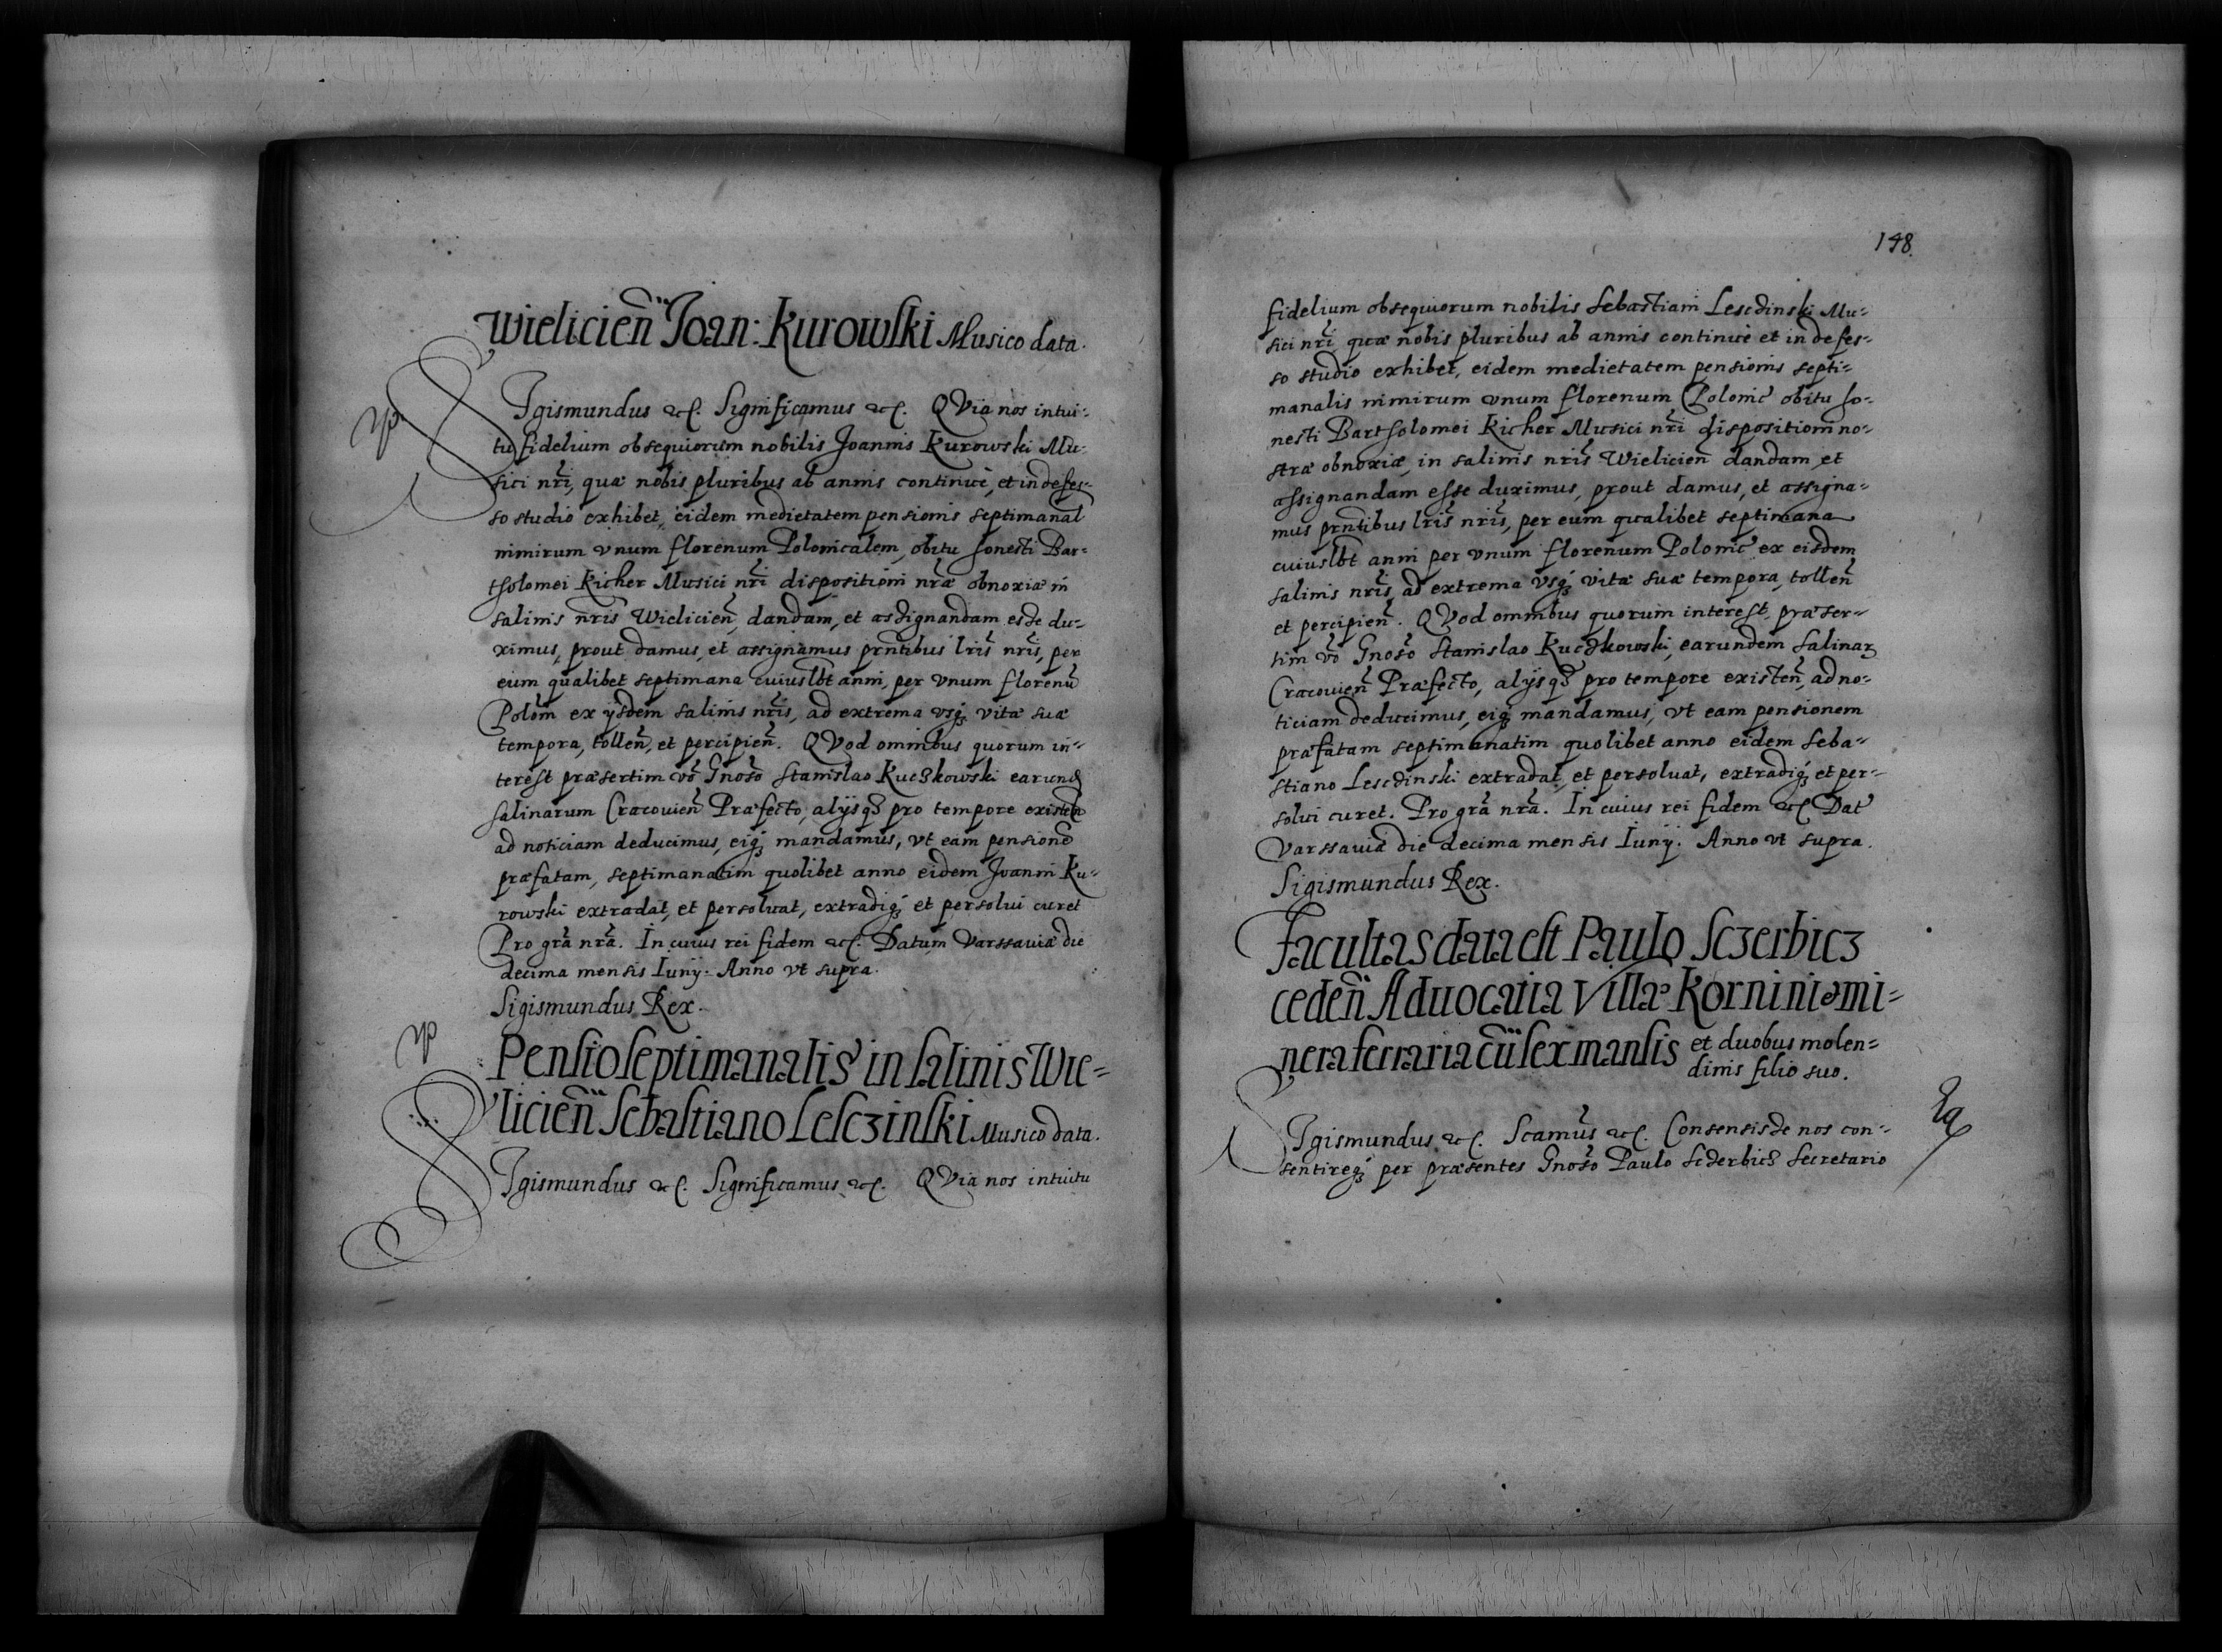 Wielicień Joan: Kurowski Musico data.
Sigismundus etc. Significamus etc. QVia nos intui-
tu fidelium obsequiorum nobilis Joannis Kurowski Mu-
sici nrĩ, quæ nobis pluribus ab annis continuè, et indefes-
so studio exhibet, eidem medietatem pensionis septimanal
nimirum vnum florenum Polonicalem, obitu honesti Bar-
tholomei Kicher Musici nrĩ dispositioni nrã obnoxiæ in
salinis nrĩs Wielicień, dandam, et assignandam esse du-
ximus, prout damus, et assignamus prñtibus lrĩs nrĩs, per
eum qualibet septimana cuiuslbt anni, per vnum florenũ
Polom̃ ex ijsdem salinis nrĩs, ad extrema vsq; vitæ suæ
tempora, tolleñ, et percipieñ. QVod omnibus quorum in-
terest præsertim võ Gnoso Stanislao Kuczkowski earund
salinarum Cracovieñ Præfecto, alijsq3 pro tempore existeñ
ad noticiam deducimus, eiq; mandamus, vt eam pensionẽ
præfatam, septimanatim quolibet anno eidem Joanni Ku-
rowski extradat, et persoluat, extradiq; et persolui curet
Pro grã nrã. In cuius rei fidem etc. Datum Varssauiæ die
decima mensis Iunij. Anno vt supra.
Sigismundus Rex.
Pensio septimanalis in salinis Wie-
licień Sebastiano Lesczinski Musico data.
Sigismundus etc. Significamus etc. QVia nos intuitu
148.
fidelium obsequiorum nobilis Sebastiani Lesczinski Mu-
sici nrĩ quæ nobis pluribus ab annis continuè et indefes-
so studio exhibet, eidem medietatem pensionis septi-
manalis nimirum vnum florenum Polonic̃ obitu ho-
nesti Bartholomei Kicher Musici nrĩ dispositioni no-
stræ obnoxiæ, in salinis nrĩs Wielicień dandam, et
assignandam esse duximus, prout damus, et assigna-
mus prñtibus lrĩs nrĩs, per eum qualibet septimana
cuiuslbt anni per vnum florenum Polonic̃ ex eisdem
salinis nrĩs, ad extrema vsq; vitæ suæ tempora, tolleñ
et percipieñ. QVod omnibus quorum interest, præser-
tim võ Gnoso Stanislao Kuczkowski, earundem Salinar
Cracouieñ Præfecto, alijsq3 pro tempore existeñ, ad no-
ticiam deducimus, eiq; mandamus, vt eam pensionem
præfatam septimanatim quolibet anno eidem Seba-
stiano Lesczinski extradat, et persoluat, extradiq; et per-
solui curet. Pro grã nrã. In cuius rei fidem etc. Dat̃
Varssauiæ die decima mensis Iunij. Anno vt supra.
Sigismundus Rex.
Facultas data est Paulo Sczerbicz
cedeñ Aduocatia Villæ Kornini & mi-
nera ferraria cũ sex mansis et duobus molen-
dinis filio suo.
Sigismundus etc. Scamus etc. Consensisse nos con-
sentireq; per præsentes Gnoso Paulo Sczerbicz Secretario